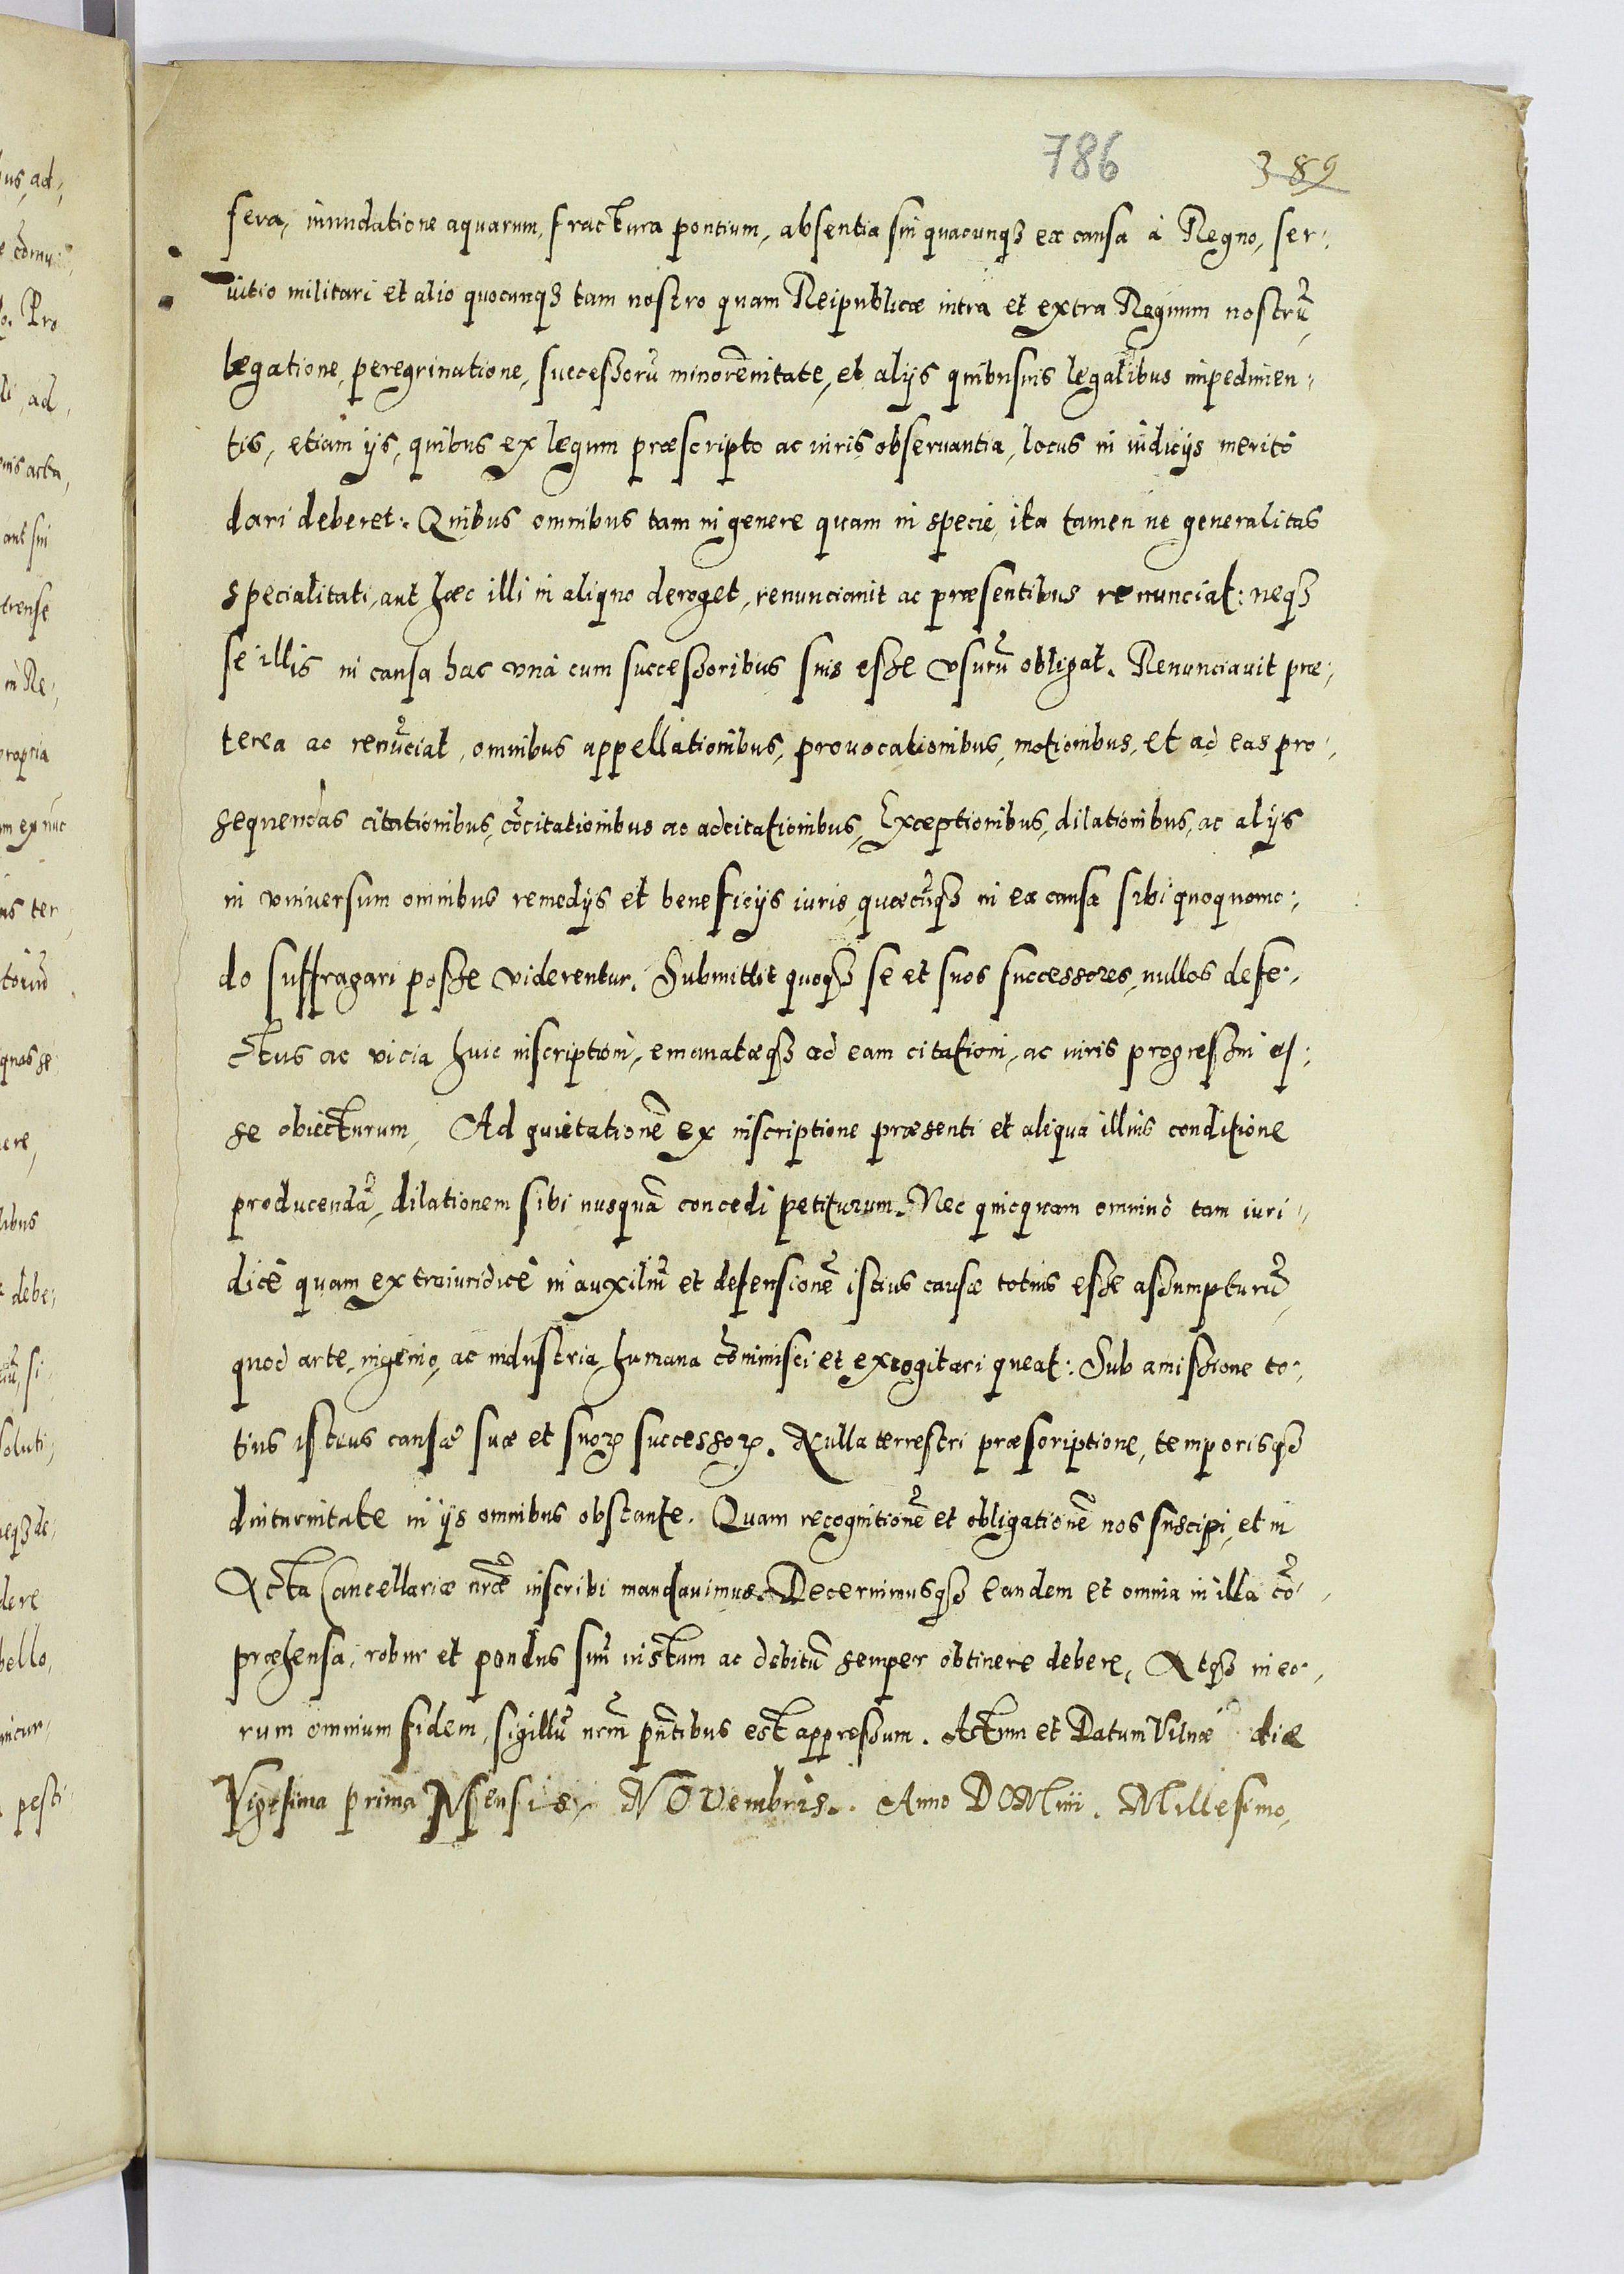 786 389
fera, inundatione aquarum, fractura pontium, absentia sui quacunqȝ ex causa à Regno, ser-
uitio militari et alio quocunqȝ tam nostro quam Reipublicæ intra et extra Regnum nostrũ,
legatione, peregrinatione, successorũ minorẽnitate, et alijs quibusuis legalibus impedimen-
tis, etiam ijs, quibus ex legum præscripto ac iuris obseruantia, locus in iudicijs meritò
dari deberet: Quibus omnibus tam in genere quam in specie, ita tamen ne generalitas
specialitati, aut hæc illi in aliquo deroget, renunciauit ac præsentibus renunciat: neqȝ
se illis in causa hac vnà cum successoribus suis esse vsurũ obligat. Renunciauit præ-
terea ac renũciat, omnibus appellationibus, prouocationibus, motionibus, et ad eas pro-
sequendas citationibus, cõcitationibus ac adcitationibus, Exceptionibus, dilationibus, ac alijs
in vniuersum omnibus remedijs et beneficijs iuris, quæcũqȝ in ea causa sibi quoquomo-
do suffragari posse viderentur. Submittit quoqȝ se et suos successores, nullos defe-
ctus ac vicia huic inscriptioni, emanatæqȝ ad eam citationi, ac iuris progressui es-
se obiecturum, Ad quietationẽ ex inscriptione præsenti et aliqua illius conditione
producendã, dilationem sibi nusquã concedi petiturum. Nec quicquam omninò tam iuri-
dicè quam extraiuridicè in auxiliũ et defensionẽ istius causæ totius esse assumpturũ,
quod arte, ingenio, ac industria humana cõminisci et excogitari queat: Sub amissione to-
tius istius causæ suæ et suoꝝ successoꝝ. Nulla terrestri præscriptione, temporisqȝ
diuturnitate in ijs omnibus obstante. Quam recognitionẽ et obligationẽ nos suscipi, et in
Acta Cancellariæ nr̃æ inscribi mandauimus. Decernimusqȝ eandem et omnia in illa cõ-
præhensa, robur et pondus suũ iustum ac debitũ semper obtinere debere, Atqȝ in eo-
rum omnium fidem, sigillũ nr̃m pñtibus est appressum. Actum et Datum Vilnæ die
Vigesima prima Mensis NOVembris. Anno DOMini. Millesimo,